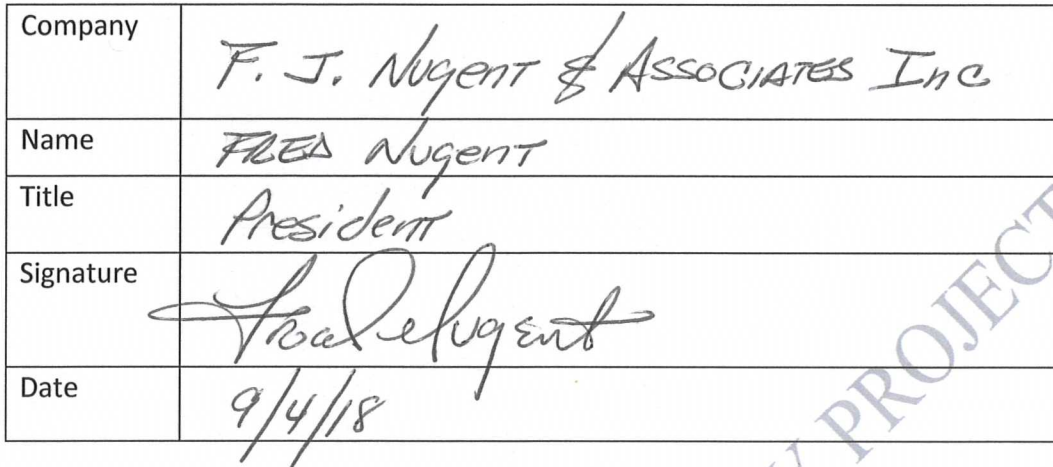 Company F. J. Nugent & Associates Inc
Name FRED Nugent
Title President
Signature Fred Nugent
Date 9/4/18
PROJECT